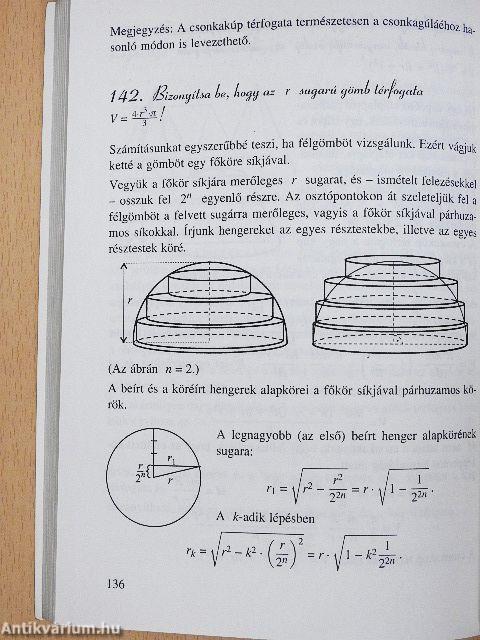 Megjegyzés: A csonkakúp térfogata természetesen a csonkagúláéhoz ha-
sonló módon is levezethető.
142. Bizonyítsa be, hogy az r sugarú gömb térfogata
V = \frac{4·r³·π}{3} !
Számításunkat egyszerűbbé teszi, ha félgömböt vizsgálunk. Ezért vágjuk
ketté a gömböt egy főköre síkjával.
Vegyük a főkör síkjára merőleges r sugarat, és – ismételt felezésekkel
– osszuk fel 2ⁿ egyenlő részre. Az osztópontokon át szeleteljük fel a
félgömböt a felvett sugárra merőleges, vagyis a főkör síkjával párhuza-
mos síkokkal. Írjunk hengereket az egyes résztestekbe, illetve az egyes
résztestek köré.
r
(Az ábrán n = 2.)
A beírt és a köréírt hengerek alapkörei a főkör síkjával párhuzamos kö-
rök.
A legnagyobb (az első) beírt henger alapkörének
sugara:
\frac{r}{2ⁿ} r₁ r
r₁ = \sqrt{r² − \frac{r²}{2^{2n}}} = r · \sqrt{1 − \frac{1}{2^{2n}}} .
A k-adik lépésben
r_k = \sqrt{r² − k² · \left(\frac{r}{2ⁿ}\right)²} = r · \sqrt{1 − k² \frac{1}{2^{2n}}} .
136
Antikvárium.hu